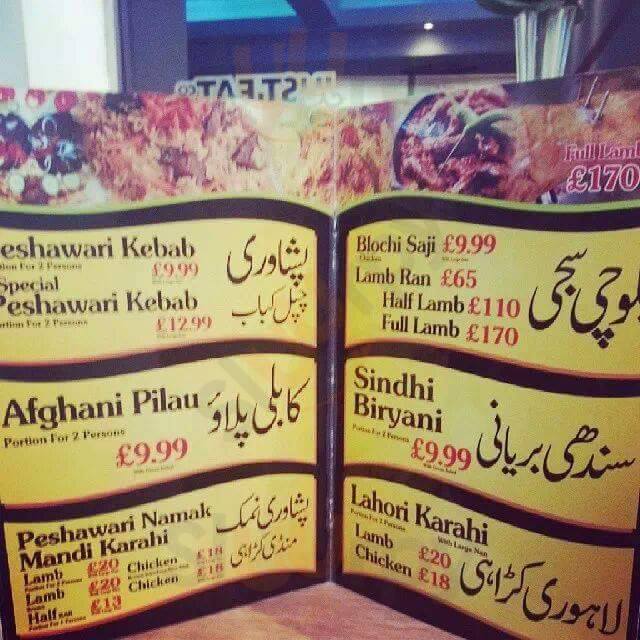 JUST-EAT
Full Lamb
£170
Peshawari Kebab
Portion For 2 Persons
£9.99
Special
Peshawari Kebab
Portion For 2 Persons
£12.99
پشاوری
چپل کباب
Afghani Pilau
Portion For 2 Persons
£9.99
کابلی پلاؤ
Peshawari Namak
Mandi Karahi
Lamb £20 Chicken £18
Lamb £20 Chicken £18
Half £13
پشاوری نمک
منڈی کڑاہی
Blochi Saji £9.99
Chicken
Lamb Ran £65
Half Lamb £110
Full Lamb £170
بلوچی سجی
Sindhi
Biryani
Portion For 2 Persons
£9.99
سندھی بریانی
Lahori Karahi
Portion For 2 Persons With Large Nan
Lamb £20
Chicken £18
لاہوری کڑاہی